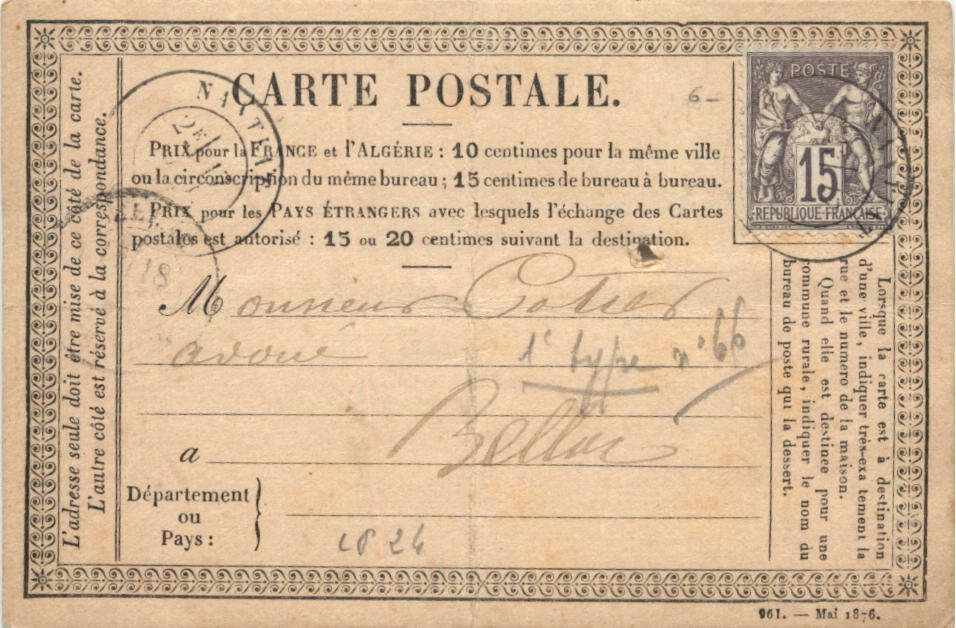 CARTE POSTALE.
6-
POSTE
15
REPUBLIQUE FRANÇAISE
PRIX pour la FRANCE et l'ALGÉRIE : 10 centimes pour la même ville
ou la circonscription du même bureau ; 15 centimes de bureau à bureau.
PRIX pour les PAYS ÉTRANGERS avec lesquels l'échange des Cartes
postales est autorisé : 15 ou 20 centimes suivant la destination.
L'adresse seule doit être mise de ce côté de la carte.
L'autre côté est réservé à la correspondance.
18
Monsieur
avoué
1e type n° 66
a
Département
ou
Pays :
CP 24
Lorsque la carte est à destination
d'une ville, indiquer très-exa tement la
rue et le numero de la maison.
Quand elle est destinee pour une
commune rurale, indiquer le nom du
bureau de poste qui la dessert.
961. — Mai 1876.